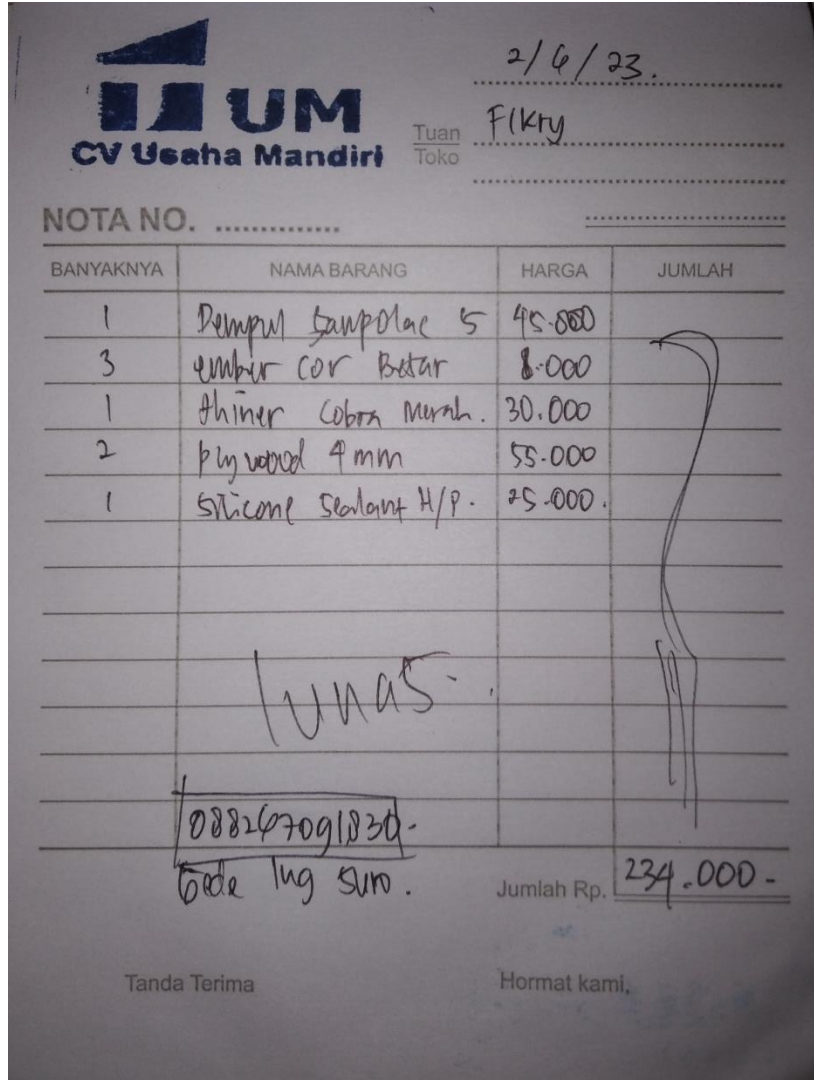 2/6/23.
UM
CV Usaha Mandiri
Tuan
Toko
Fikry
NOTA NO. ...............
BANYAKNYA NAMA BARANG HARGA JUMLAH
1 Dempul Sanpolac 5 45.000
3 ember cor Betar 8.000
1 thiner Cobra Merah. 30.000
2 plywood 4 mm 55.000
1 Silicone Sealant H/P. 25.000.
lunas.
088267091830-
Gede Ing suro.
Jumlah Rp. 234.000-
Tanda Terima Hormat kami,